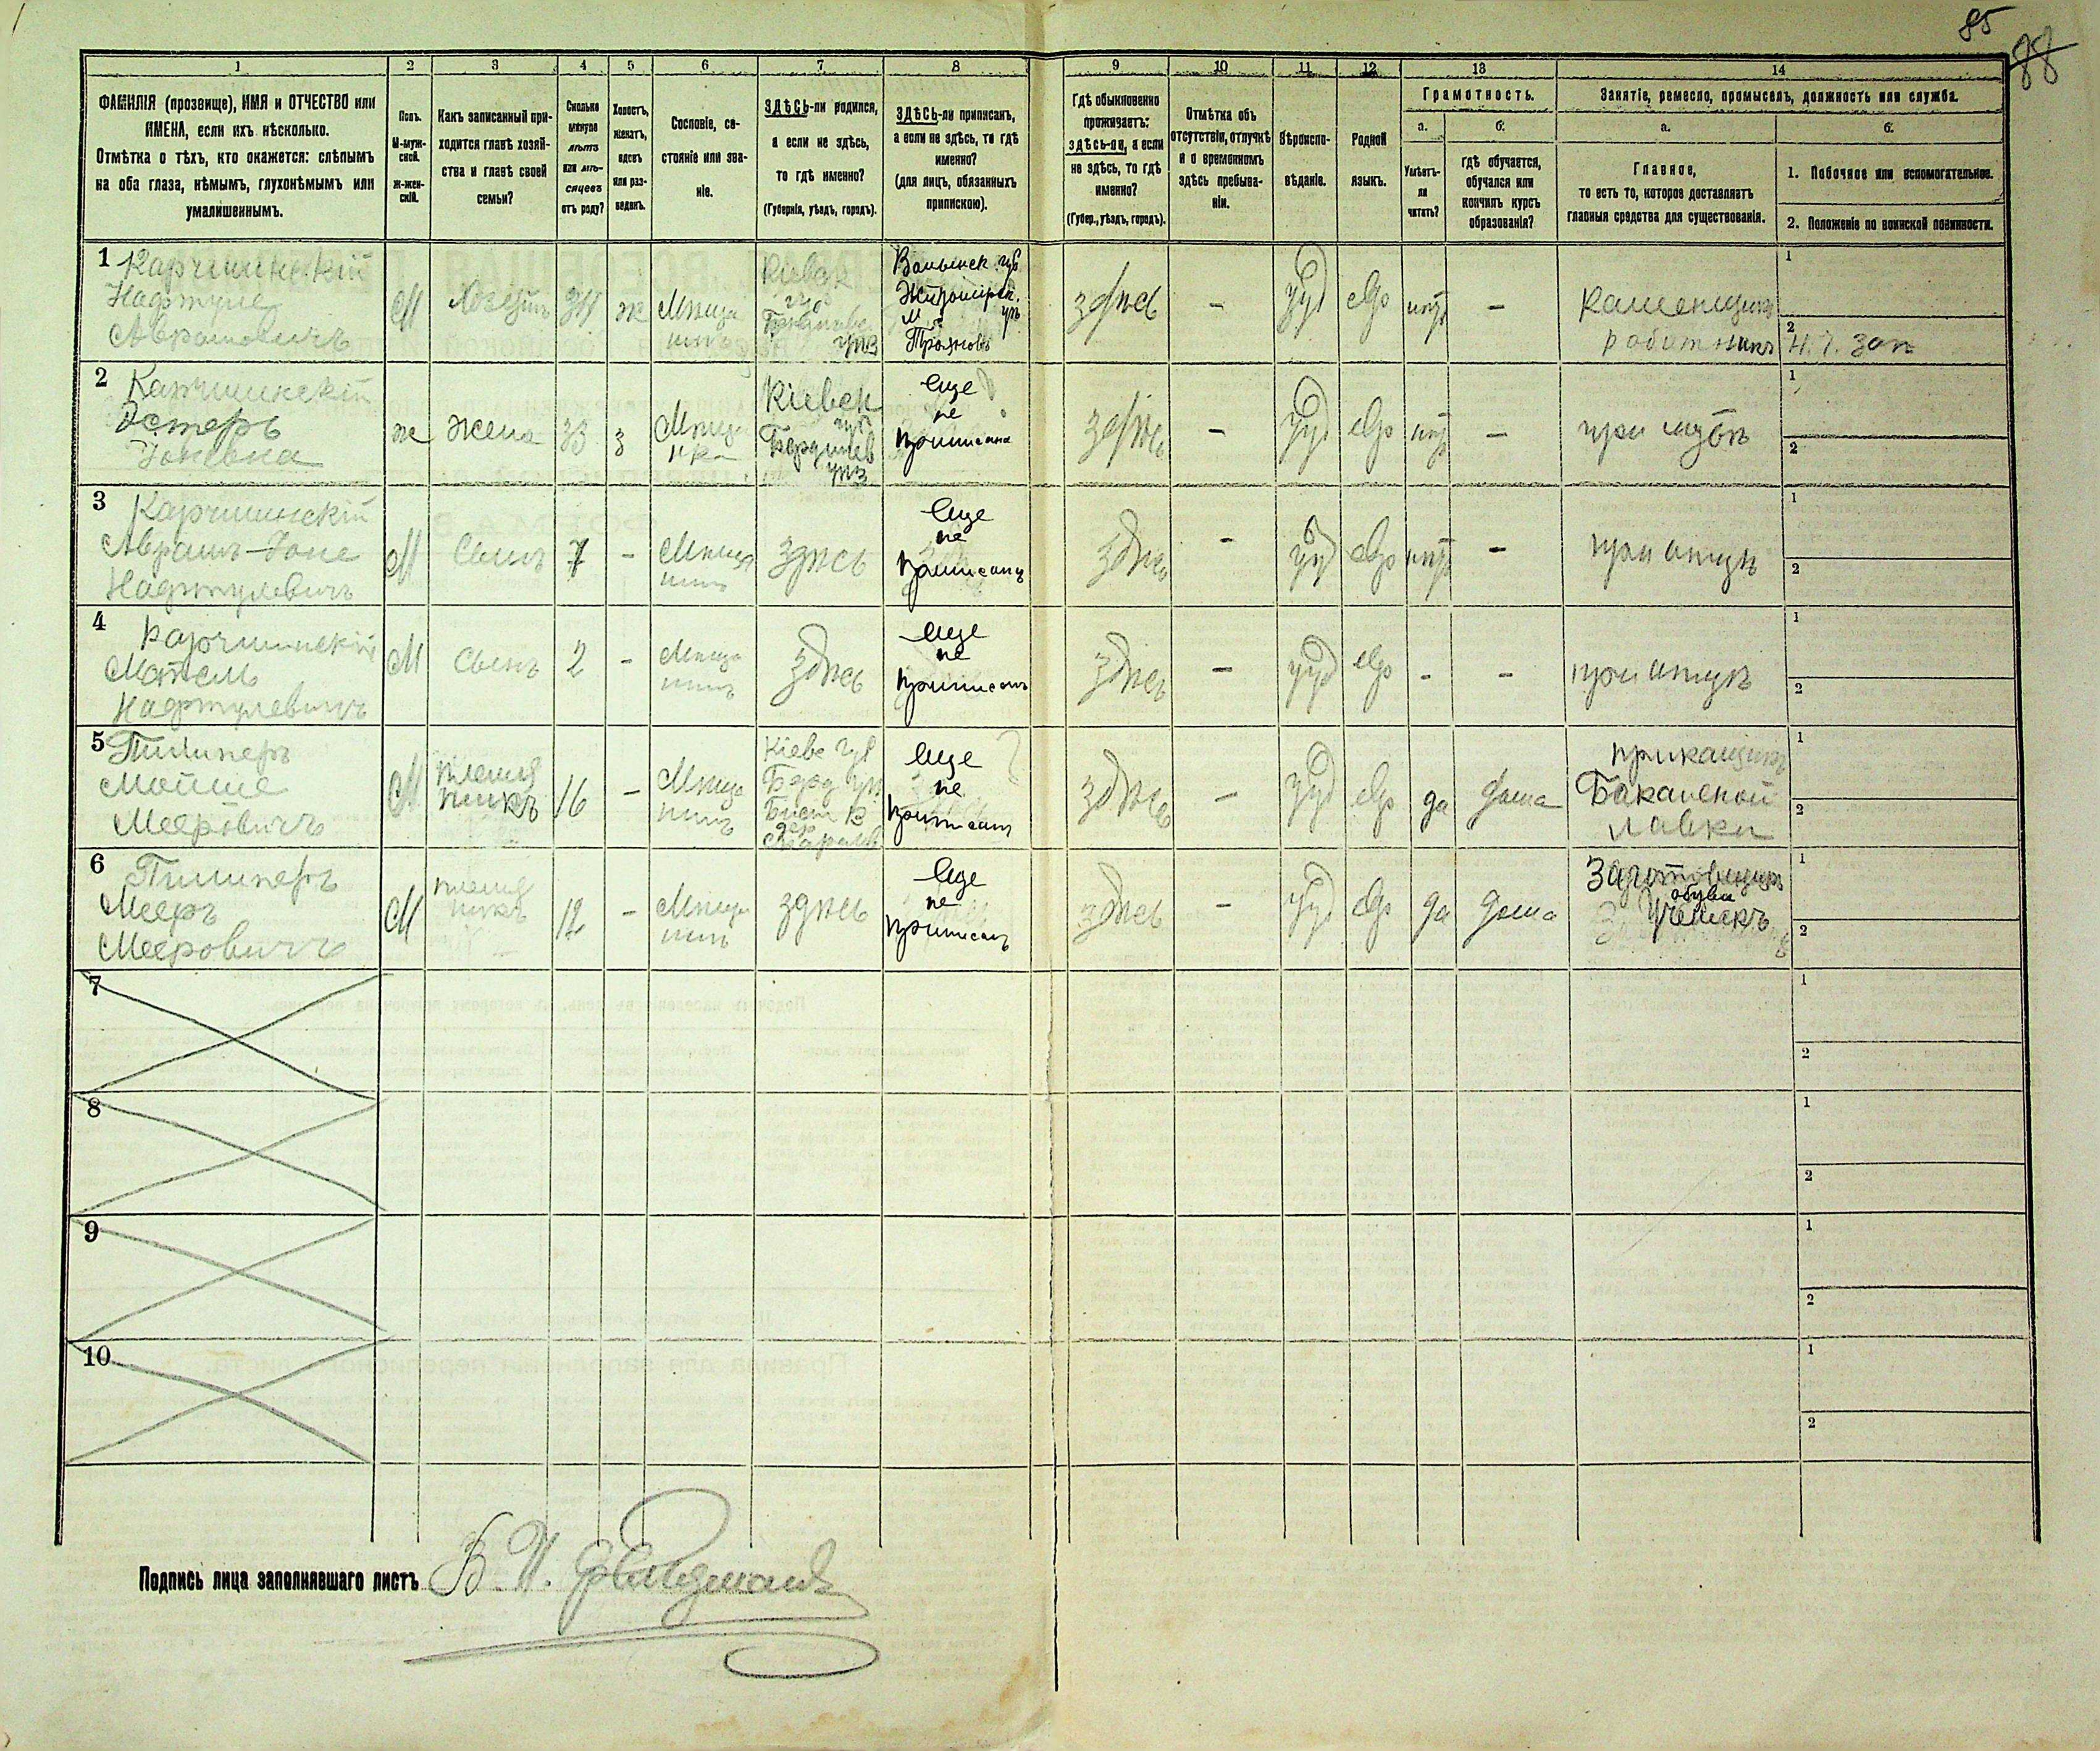 85
88
1
2
3
4
5
6
7
8
9
10
11
12
13
14
ФАМИЛІЯ (прозвище), ИМЯ и ОТЧЕСТВО или
ИМЕНА, если ихъ нѣсколько.
Отмѣтка о тѣхъ, кто окажется: слѣпымъ
на оба глаза, нѣмымъ, глухонѣмымъ или
умалишеннымъ.
Полъ.
М-муж-
ской.
Ж-жен-
скій.
Какъ записанный при-
ходится главѣ хозяй-
ства и главѣ своей
семьи?
Сколько
минуло
лѣтъ
или мѣ-
сяцевъ
отъ роду?
Холостъ,
женатъ,
вдовъ
или раз-
веденъ.
Сословіе, со-
стояніе или зва-
ніе.
ЗДѢСЬ-ли родился,
а если не здѣсь,
то гдѣ именно?
(Губернія, уѣздъ, городъ).
ЗДѢСЬ-ли приписанъ,
а если не здѣсь, то гдѣ
именно?
(для лицъ, обязанныхъ
припискою).
Гдѣ обыкновенно
проживаетъ:
здѣсь-ли, а если
не здѣсь, то гдѣ
именно?
(Губер., уѣздъ, городъ).
Отмѣтка объ
отсутствіи, отлучкѣ
и о временномъ
здѣсь пребыва-
ніи.
Вѣроиспо-
вѣданіе.
Родной
языкъ.
Грамотность.
а.
б.
Умѣетъ-
ли
читать?
гдѣ обучается,
обучался или
кончилъ курсъ
образованія?
Занятіе, ремесло, промыселъ, должность или служба.
а.
б.
Главное,
то есть то, которое доставляетъ
главныя средства для существованія.
1. Побочное или вспомогательное.
2. Положеніе по воинской повинности.
1 Карчминскій
Нафтуле
Аврамовичъ
М
Хозяинъ
34
ж
Мѣща
нинъ
Кіевск
губ
уѣз
Волынск. губ
Житомірск.
уѣ
м
Трояновъ
здѣсь
-
іуд
евр
нѣт
-
каменщикъ
работникъ
1
2
2 Карчминскій
Эстеръ
Іоневна
ж
жена
33
з
Мѣща
нка
Кіевск
губ
Бердичев
уѣз
еще
не
приписана
здѣсь
-
іуд
евр
нѣт
-
при мужѣ
1
2
3 Карчминскій
Аврамъ-Іоне
Нафтулевичъ
М
Сынъ
7
-
Мѣща
нинъ
здѣсь
еще
не
приписанъ
здѣсь
-
іуд
евр
нѣт
-
при отцѣ
1
2
4 Карчминскій
Мотель
Нафтулевичъ
М
Сынъ
2
-
Мѣща
нинъ
здѣсь
еще
не
приписанъ
здѣсь
-
іуд
евр
-
-
при отцѣ
1
2
5
Мойше
Мееровичъ
М
племя
никъ
16
-
Мѣща
нинъ
Кіевс губ
еще
не
приписанъ
здѣсь
-
іуд
евр
да
дома
прикащикъ
Бакалейной
лавки
1
2
6
Мееръ
Мееровичъ
М
племя
никъ
12
-
Мѣща
нинъ
здѣсь
еще
не
приписанъ
здѣсь
-
іуд
евр
да
дома
Заготовщикъ
обуви
Ученикъ
1
2
7
1
2
8
1
2
9
1
2
10
1
2
Подпись лица заполнявшаго листъ